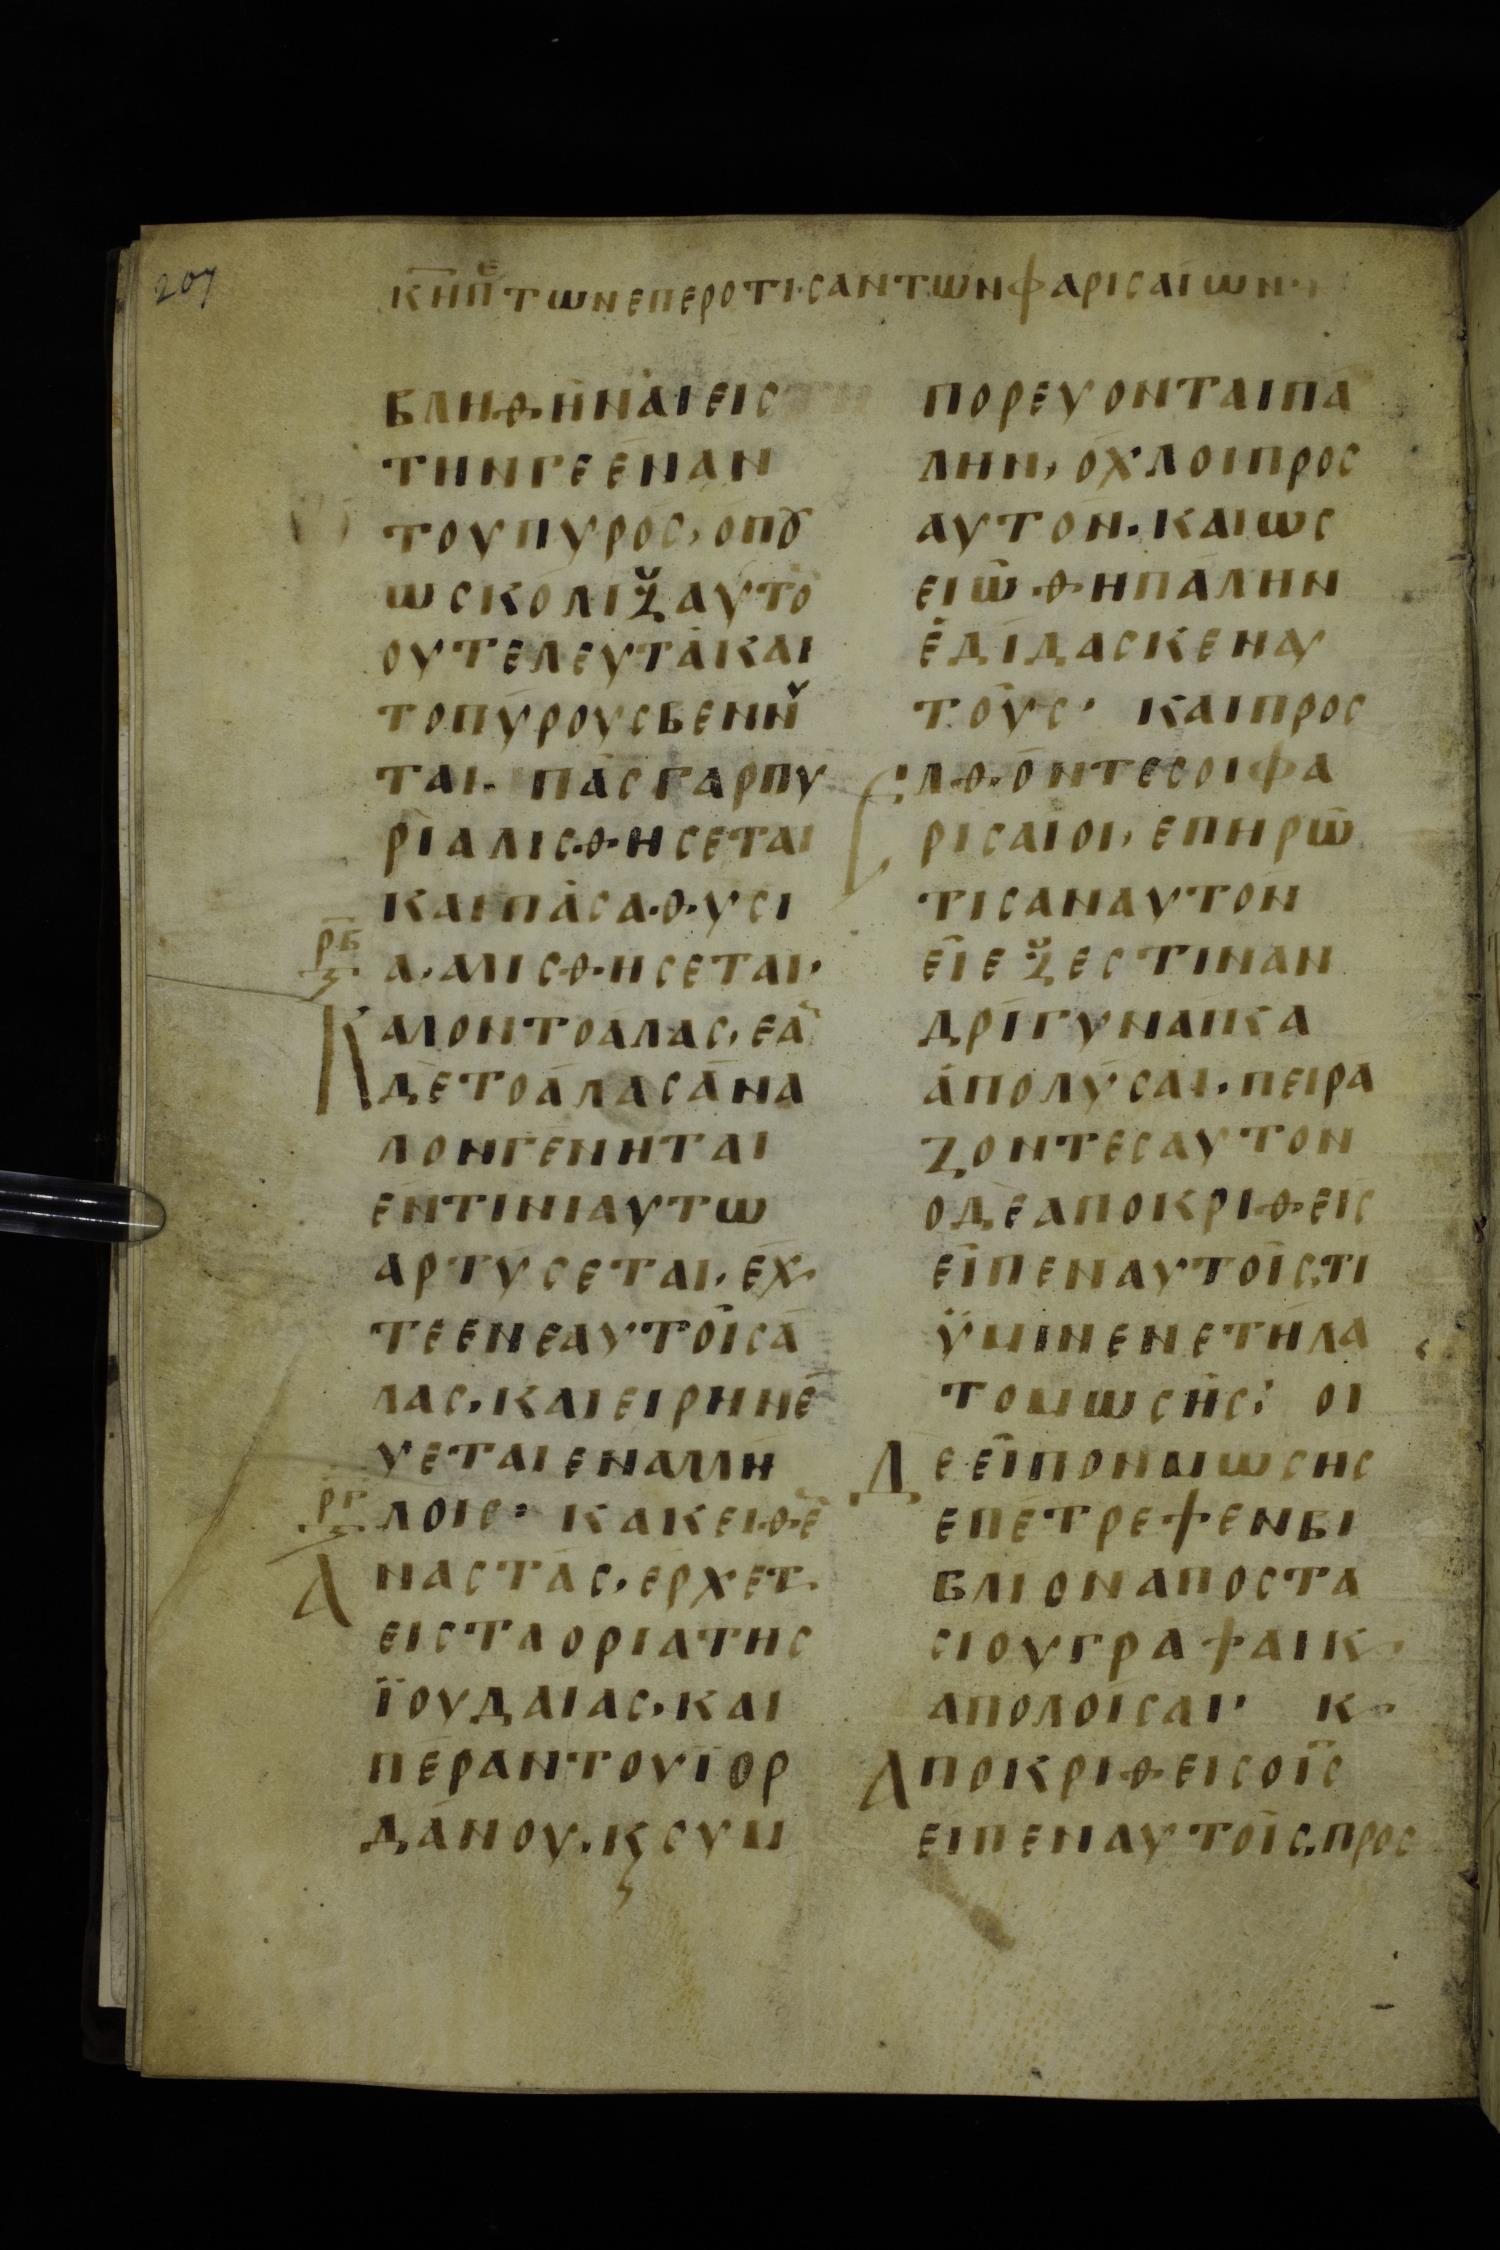 207
ΚΗ ΠΕ ΤΩΝ ΕΠΕΡΟΤΙΣΑΝΤΩΝ ΦΑΡΙΣΑΙΩΝ
ΒΛΗΘΗΝΑΙ ΕΙΣ
ΤΗΝ ΓΕΕΝΑΝ
ΤΟΥ ΠΥΡΟΣ, ΟΠȢ
ΩΣΚΟΛΙΞ ΑΥΤΟ
ΟΥ ΤΕΛΕΥΤΑ ΚΑΙ
ΤΟ ΠΥΡ ΟΥ ΣΒΕΝΝΥ
ΤΑΙ. ΠΑΣ ΓΑΡ ΠΥ
ΡΙ ΑΛΙΣΘΗΣΕΤΑΙ
ΚΑΙ ΠΑΣΑ ΘΥΣΙ
ΡΒ
Α, ΑΛΙΣΘΗΣΕΤΑΙ,
Κ
ΑΛΟΝ ΤΟ ΑΛΑΣ, ΕΑ̅
ΔΕ ΤΟ ΑΛΑΣ ΑΝΑ
ΛΟΝ ΓΕΝΗΤΑΙ
ΕΝ ΤΙΝΙ ΑΥΤΩ
ΑΡΤΥΣΕΤΑΙ, ΕΧ
ΤΕ ΕΝ ΕΑΥΤΟΙΣ Α
ΛΑΣ, ΚΑΙ ΕΙΡΗΝΕ
ΥΕΤΑΙ ΕΝ ΑΛΛΗ
ΡΓ
ΛΟΙΣ· ΚΑΚΕΙΘΕ̅
Α
ΝΑΣΤΑΣ, ΕΡΧΕΤ
ΕΙΣ ΤΑ ΟΡΙΑ ΤΗΣ
ΪΟΥΔΑΙΑΣ, ΚΑΙ
ΠΕΡΑΝ ΤΟΥ ΙΟΡ
ΔΑΝΟΥ. Κ ΣΥΜ
ΠΟΡΕΥΟΝΤΑΙ ΠΑ
ΛΗΝ, ΟΧΛΟΙ ΠΡΟΣ
ΑΥΤΟΝ. ΚΑΙ ΩΣ
ΕΙΩΘΗ ΠΑΛΗΝ
ΕΔΙΔΑΣΚΕΝ ΑΥ
ΤΟΥΣ· ΚΑΙ ΠΡΟΣ
Ε
ΛΘΟΝΤΕΣ ΟΙ ΦΑ
ΡΙΣΑΙΟΙ, ΕΠΗΡΩ
ΤΙΣΑΝ ΑΥΤΟΝ
ΕΙ ΕΞΕΣΤΙΝ ΑΝ
ΔΡΙ ΓΥΝΑΙΚΑ
ΑΠΟΛΥΣΑΙ. ΠΕΙΡΑ
ΖΟΝΤΕΣ ΑΥΤΟΝ
Ο ΔΕ ΑΠΟΚΡΙΘΕΙΣ
ΕΙΠΕΝ ΑΥΤΟΙΣ, ΤΙ
ΫΜΙΝ ΕΝΕΤΗΛΑ
ΤΟ ΜΩΣΗΣ; ΟΙ
Δ
Ε ΕΙΠΟΝ ΜΩΣΗΣ
ΕΠΕΤΡΕΨΕΝ ΒΙ
ΒΛΙΟΝ ΑΠΟΣΤΑ
ΣΙΟΥ ΓΡΑΨΑΙ Κ
ΑΠΟΛΟΙΣΑΙ, Κ
Α
ΠΟΚΡΙΘΕΙΣ Ο ΙΣ
ΕΙΠΕΝ ΑΥΤΟΙΣ, ΠΡΟΣ